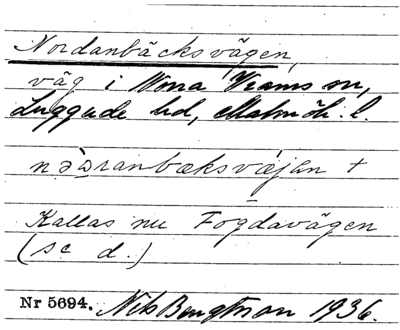 Nordanbäcksvägen,
väg i Norra Vrams sn,
Luggude hd, Malmöh. l.
nəɔranbæksvæjən +
Kallas nu Fogdavägen
(se d.)
Nr 5694. Nils Bengtsson 1936.